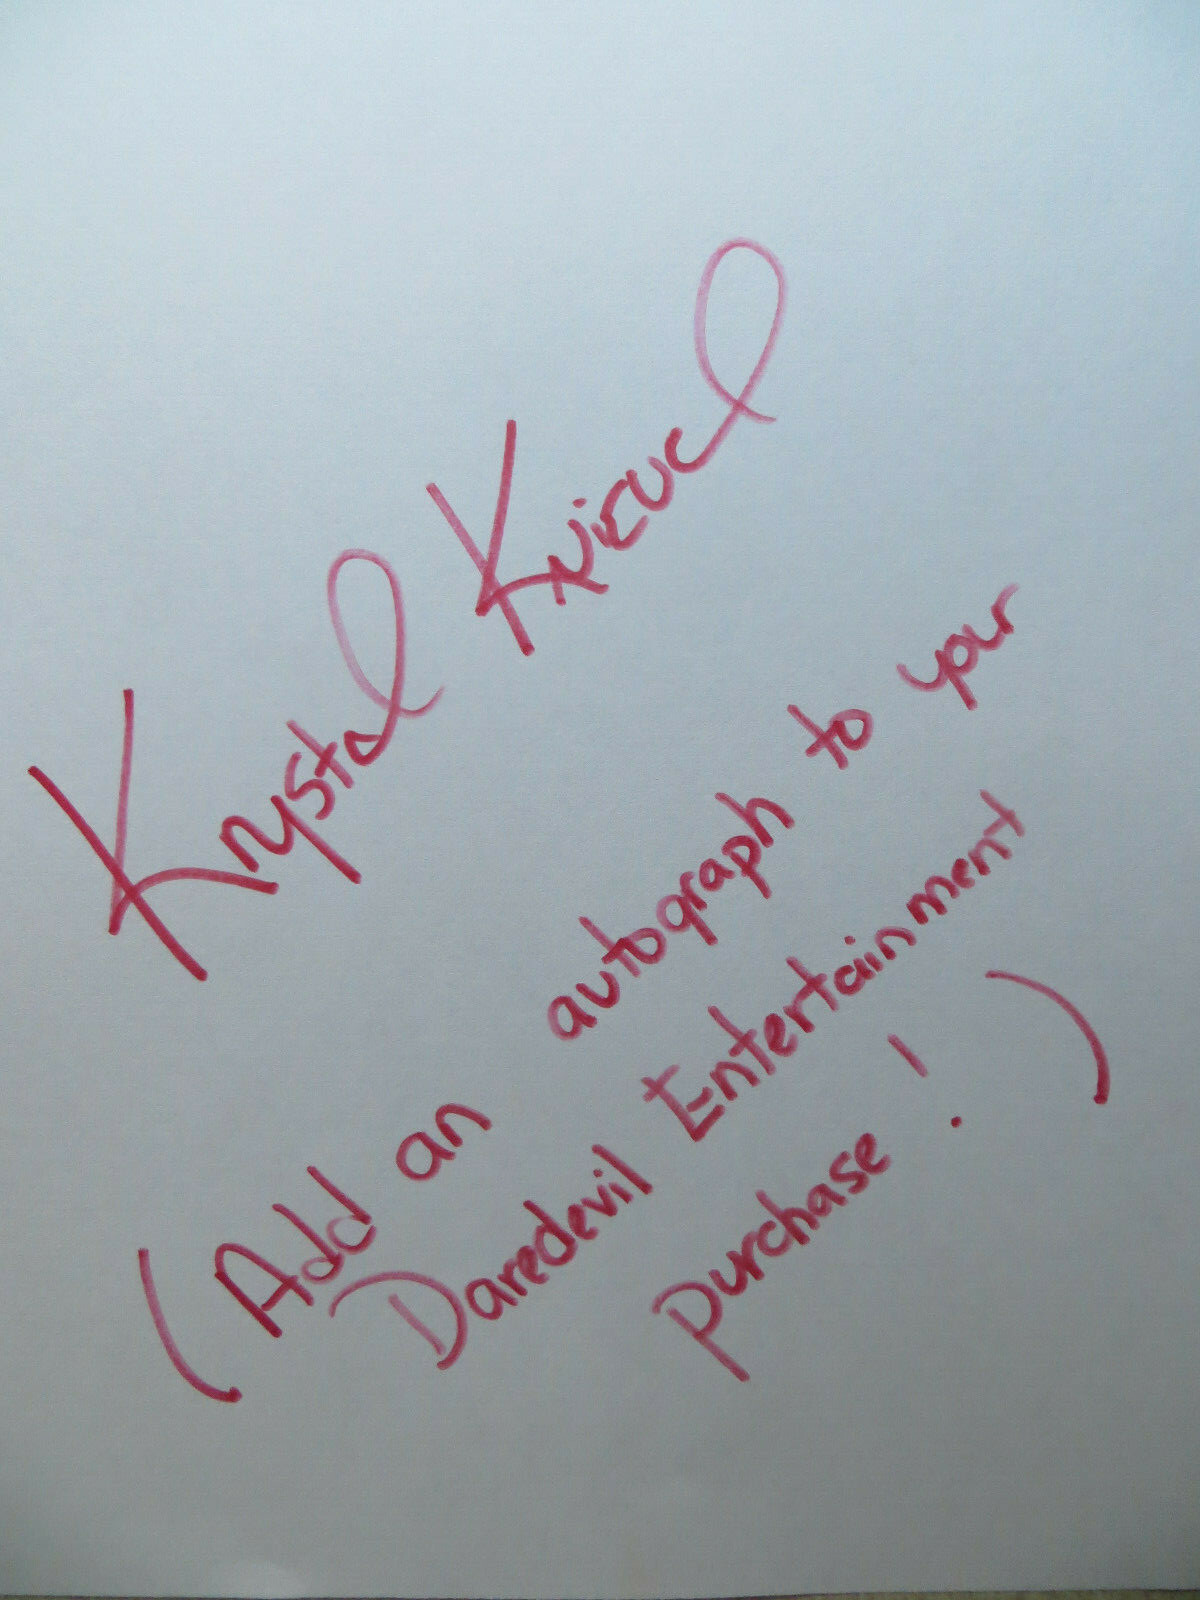 Krystal Knievel
(Add an autograph to your
Daredevil Entertainment
purchase! )